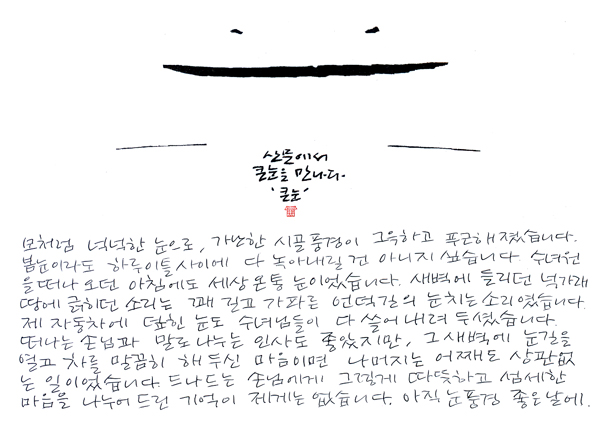 산들에서
큰눈을 만나다.
'큰눈'
모처럼 넉넉한 눈으로, 가난한 시골 풍경이 그윽하고 푸근해졌습니다.
봄눈이라도 하루이틀사이에 다 녹아내릴 건 아니지 싶습니다. 수녀원
을 떠나 오던 아침에도 세상 온통 눈이었습니다. 새벽에 들리던 넉가래
땅에 긁히던 소리는 꽤 길고 가파른 언덕길의 눈치는소리였습니다.
제 자동차에 덮힌 눈도 수녀님들이 다 쓸어 내려 두셨습니다.
떠나는 손님과 말로 나누는 인사도 좋았지만, 그 새벽에 눈길을
열고 차를 말끔히 해 두신 마음이면 나머지는 어찌해도 상관없
는 일이었습니다. 드나드는 손님에게 그렇게 따뜻하고 섬세한
마음을 나누어 드린 기억이 제게는 없습니다. 아직 눈풍경 좋은날에.